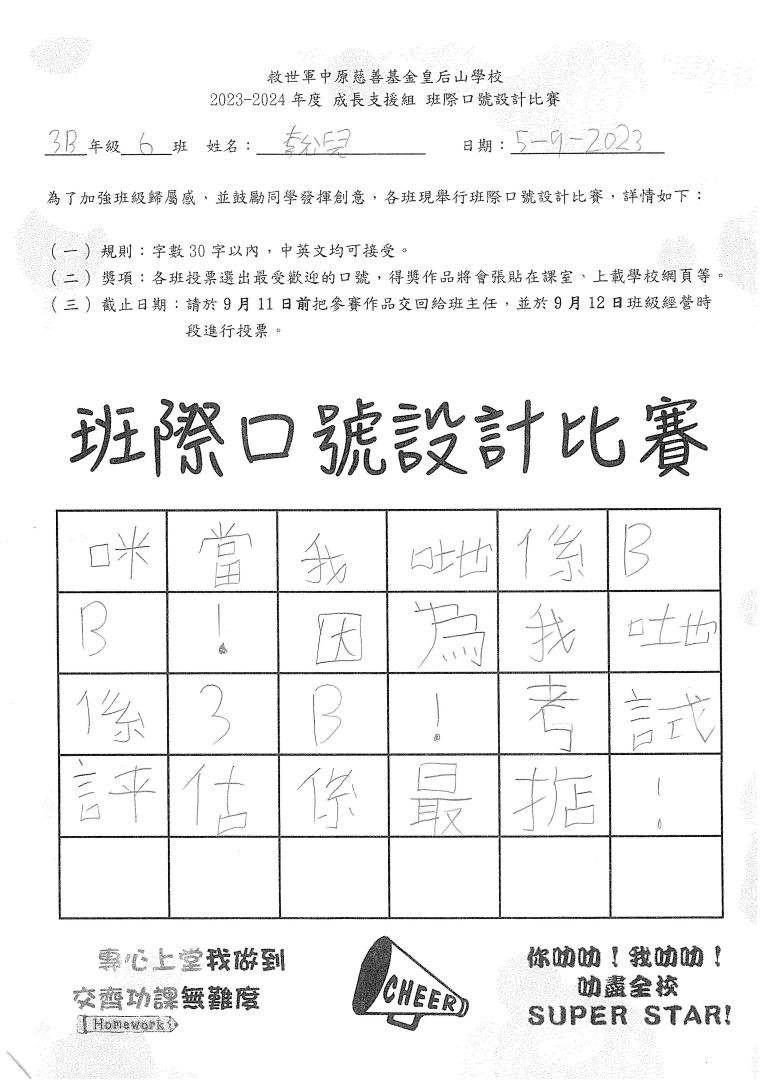 救世軍中原慈善基金皇后山學校
2023-2024 年度 成長支援組 班際口號設計比賽
3B 年級 6 班 姓名： 日期：5-9-2023
為了加強班級歸屬感，並鼓勵同學發揮創意，各班現舉行班際口號設計比賽，詳情如下：
（一）規則：字數 30 字以內，中英文均可接受。
（二）獎項：各班投票選出最受歡迎的口號，得獎作品將會張貼在課室、上載學校網頁等。
（三）截止日期：請於 9 月 11 日前把參賽作品交回給班主任，並於 9 月 12 日班級經營時
段進行投票。
班際口號設計比賽
咪當我哋係B
B！因為我哋
係3B！考試
評估係最掂！
專心上堂我做到
交齊功課無難度
Homework
CHEER
你叻叻！我叻叻！
叻盡全校
SUPER STAR!